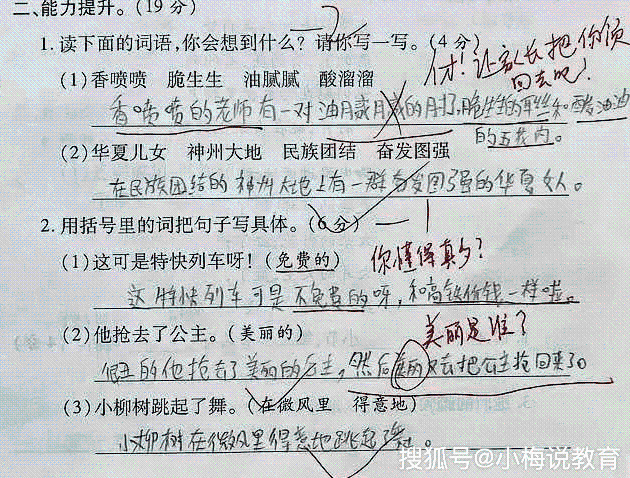 二、能力提升。(19 分)
1.读下面的词语,你会想到什么? 请你写一写。(4 分)
(1)香喷喷 脆生生 油腻腻 酸溜溜
付!让家长把你领
回去吧!
香喷喷的老师有一对油腻腻的
和酸油油
的五花肉。
(2)华夏儿女 神州大地 民族团结 奋发图强
在民族团结的神州大地上有一群奋发图强的华夏女人。
2.用括号里的词把句子写具体。(6 分)
(1)这可是特快列车呀! (免费的) 你懂得真多?
这特快列车可是不免费的呀,和高铁价钱一样啦。
(2)他抢去了公主。(美丽的) 美丽是谁?
的他抢去了美丽的公主,然后美丽又去把公主抢回来了。
(3)小柳树跳起了舞。(在微风里 得意地)
小柳树在微风里得意地跳起了舞。
搜狐号@小梅说教育